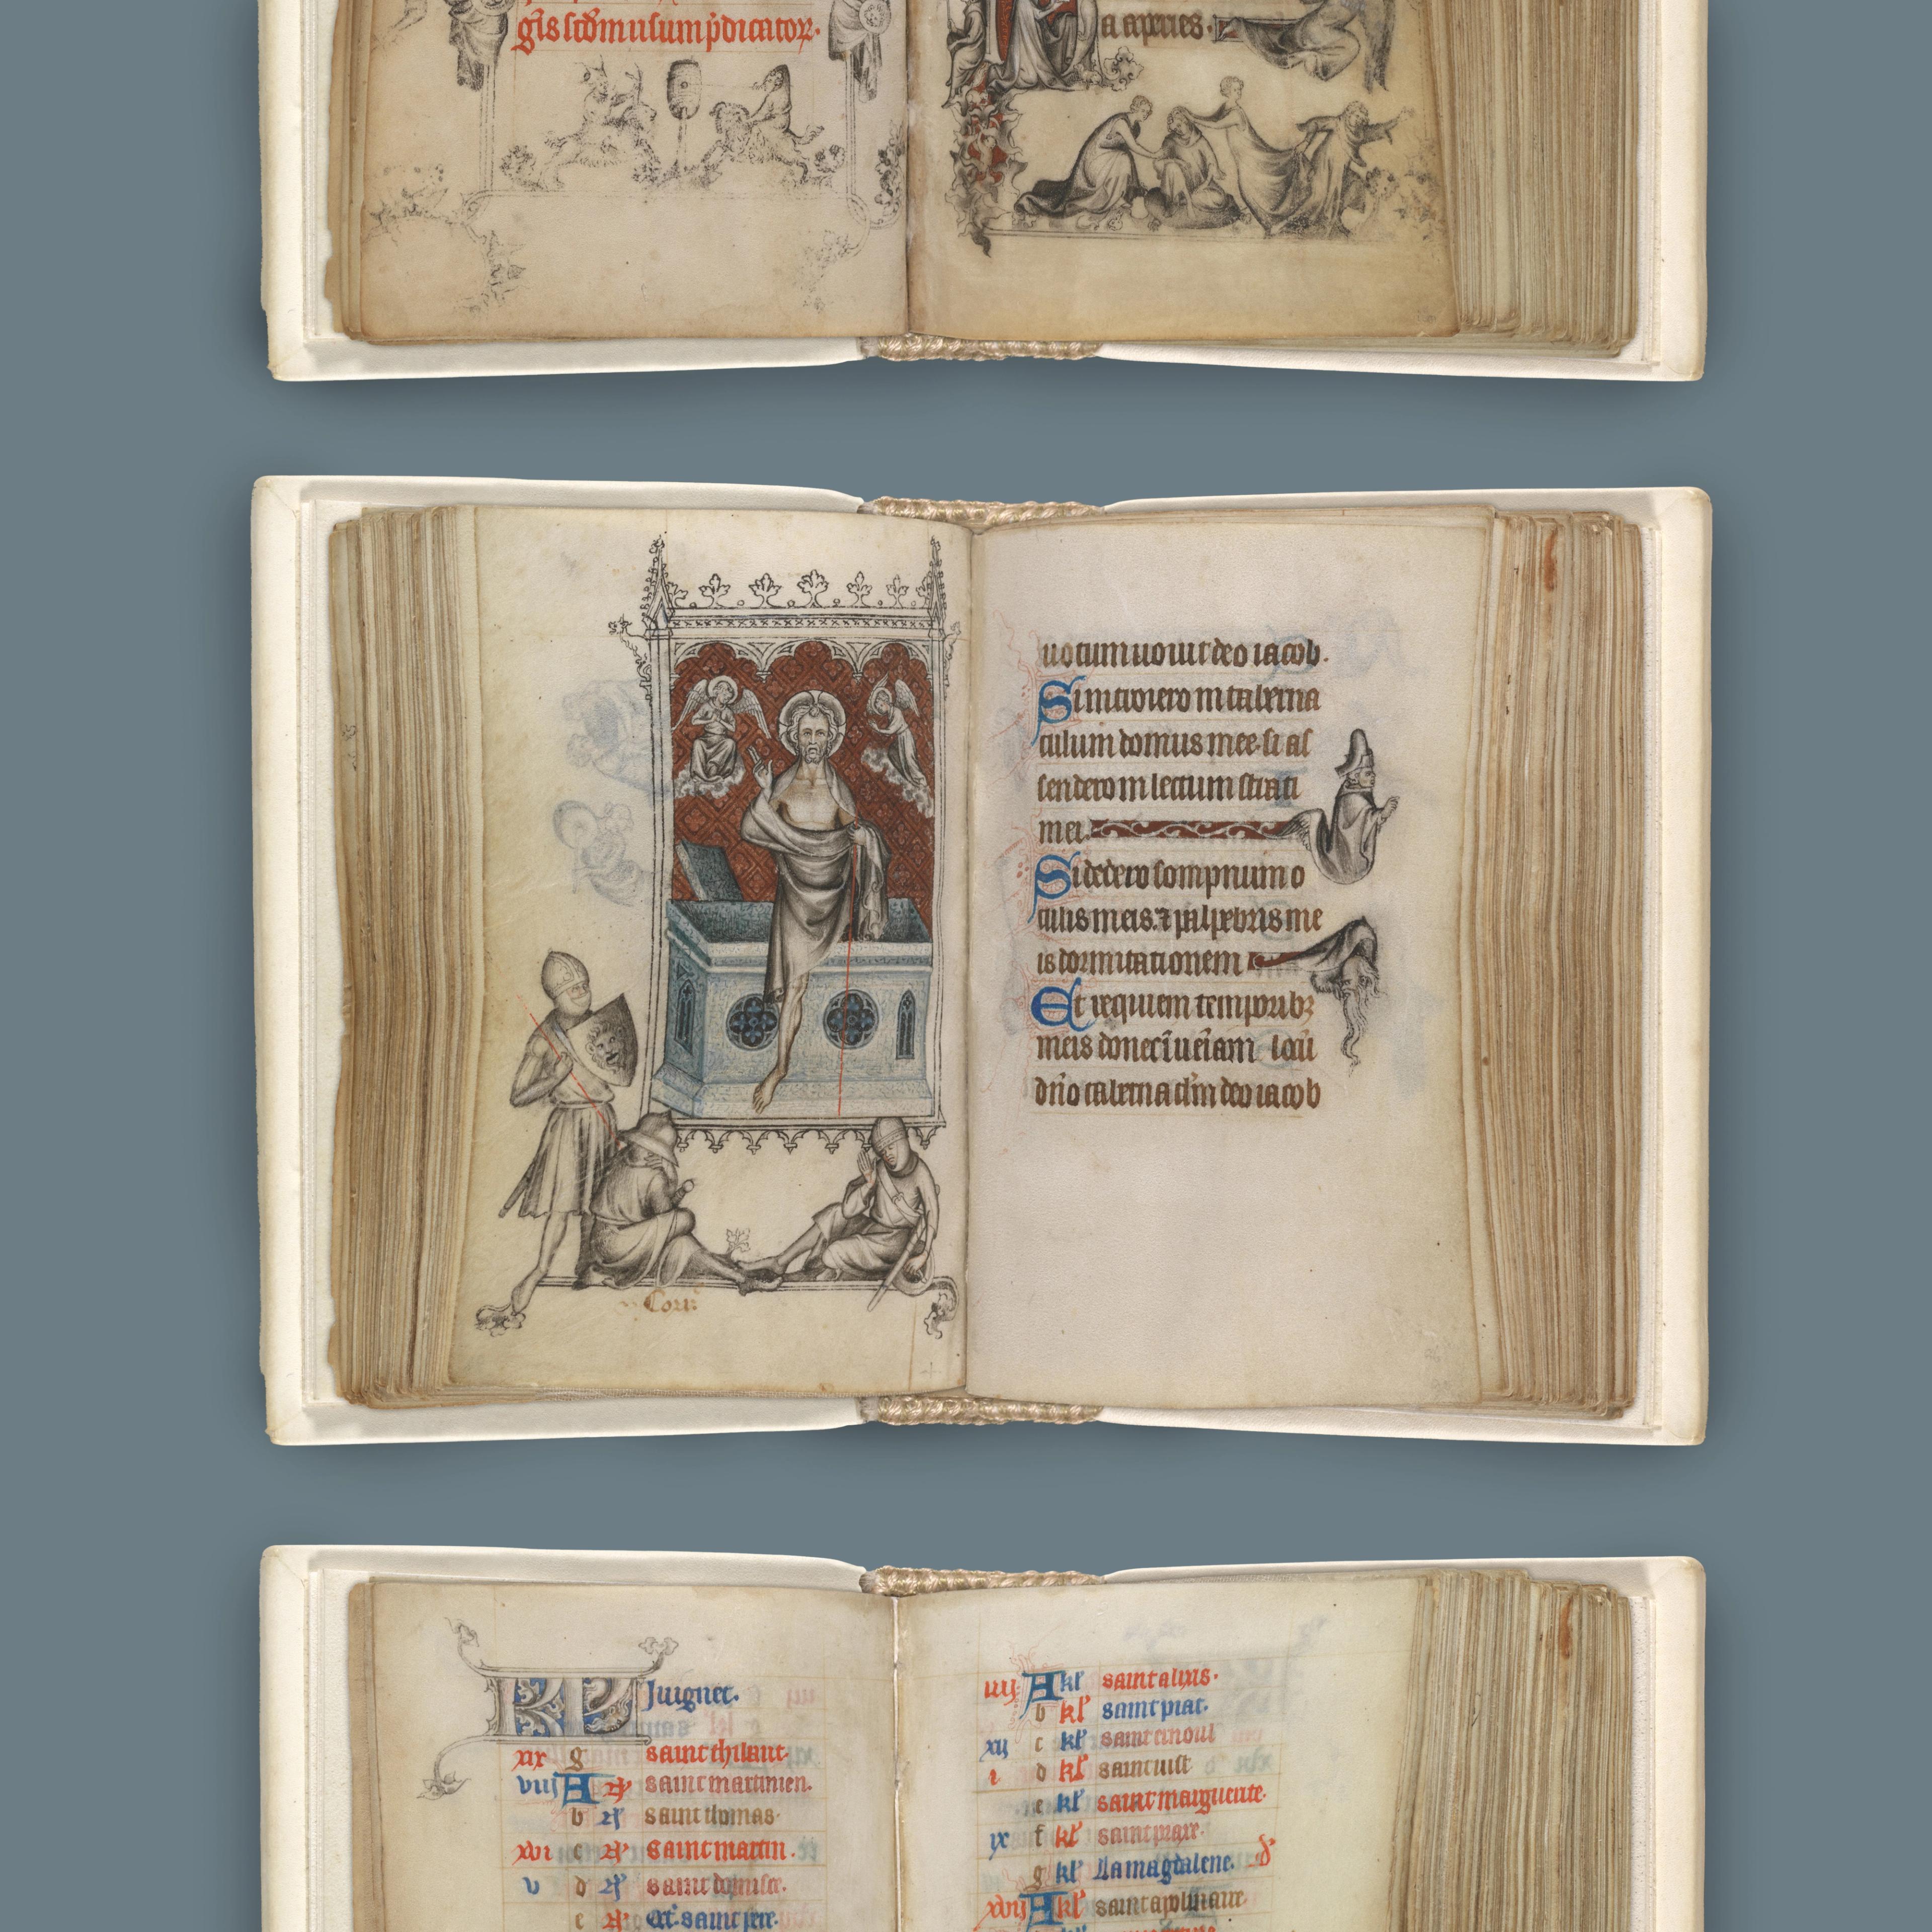 gis scd̄m usum p̄dicatoꝝ.
a apries.
uotum uouit deo iacob.
Si introiero in taberna
culum domus mee. si as
sendero in lectum strati
mei.
Si dedero sompnum o
culis meis. ⁊ palpebris me
is dormitationem
Et requiem temporibꝫ
meis donec īueniam locū
dn̄o tabernaclm̄ deo iacob
Corr̄
KL Juignet.
xix g saint thibaut.
viij A saint martinien.
b saint thomas.
xvi c saint martin.
v d saint domice.
e Oct. saint pere.
iiij A kl' saint alixis.
b kl' saint piat.
xij c kl' saint ernoul
i d kl' saint iust
e kl' saint marguerite.
ix f kl' saint praxe.
g kl' La magdalene.
xvij A kl' saint apolinaire